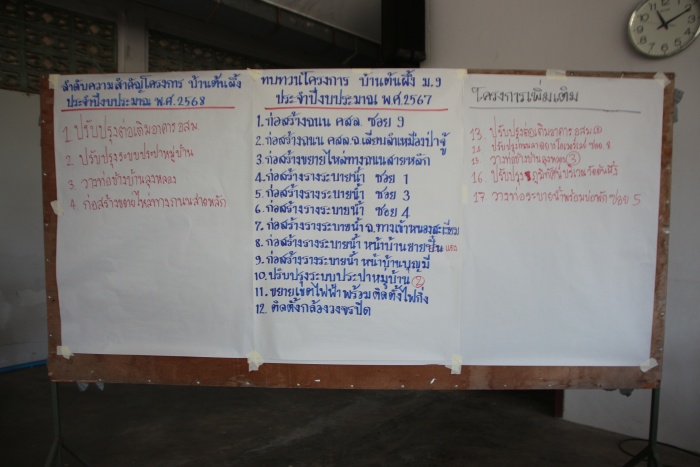 ลำดับความสำคัญโครงการ บ้านต้นผึ้ง
ประจำปีงบประมาณ พ.ศ.2568
1 ปรับปรุงต่อเติมอาคาร อสม.
2 ปรับปรุงระบบประปาหมู่บ้าน
3 วางท่อข้างบ้านลุงหลอง
4. ก่อสร้างขยายไหล่ทางถนนสายหลัก
ทบทวนโครงการ บ้านต้นผึ้ง ม.9
ประจำปีงบประมาณ พ.ศ.2567
1. ก่อสร้างถนน คสล. ซอย 9
2. ก่อสร้างถนน คสล.จ.เลียบลำเหมืองป่าจู้
3 ก่อสร้างขยายไหล่ทางถนนสายหลัก
4. ก่อสร้างรางระบายน้ำ ซอย 1
5. ก่อสร้างรางระบายน้ำ ซอย 3
6. ก่อสร้างรางระบายน้ำ ซอย 4
7. ก่อสร้างรางระบายน้ำ จ.ทางเข้าหนองสะเรียม
8. ก่อสร้างรางระบายน้ำ หน้าบ้านชาย-ปั๋น
9. ก่อสร้างรางระบายน้ำ หน้าบ้านบุญมี
10. ปรับปรุงระบบประปาหมู่บ้าน 2
11. ขยายเขตไฟฟ้าพร้อมติดตั้งไฟกิ่ง
12. ติดตั้งกล้องวงจรปิด
โครงการเพิ่มเติม
13. ปรับปรุงต่อเติมอาคาร อสม. 1
14 ปรับปรุง ซอย 8
15 วางท่อข้างบ้านลุงหลอง 3
16 ปรับปรุงภูมิทัศน์บริเวณ
17 วางท่อระบายน้ำพร้อมบ่อพัก ซอย 5